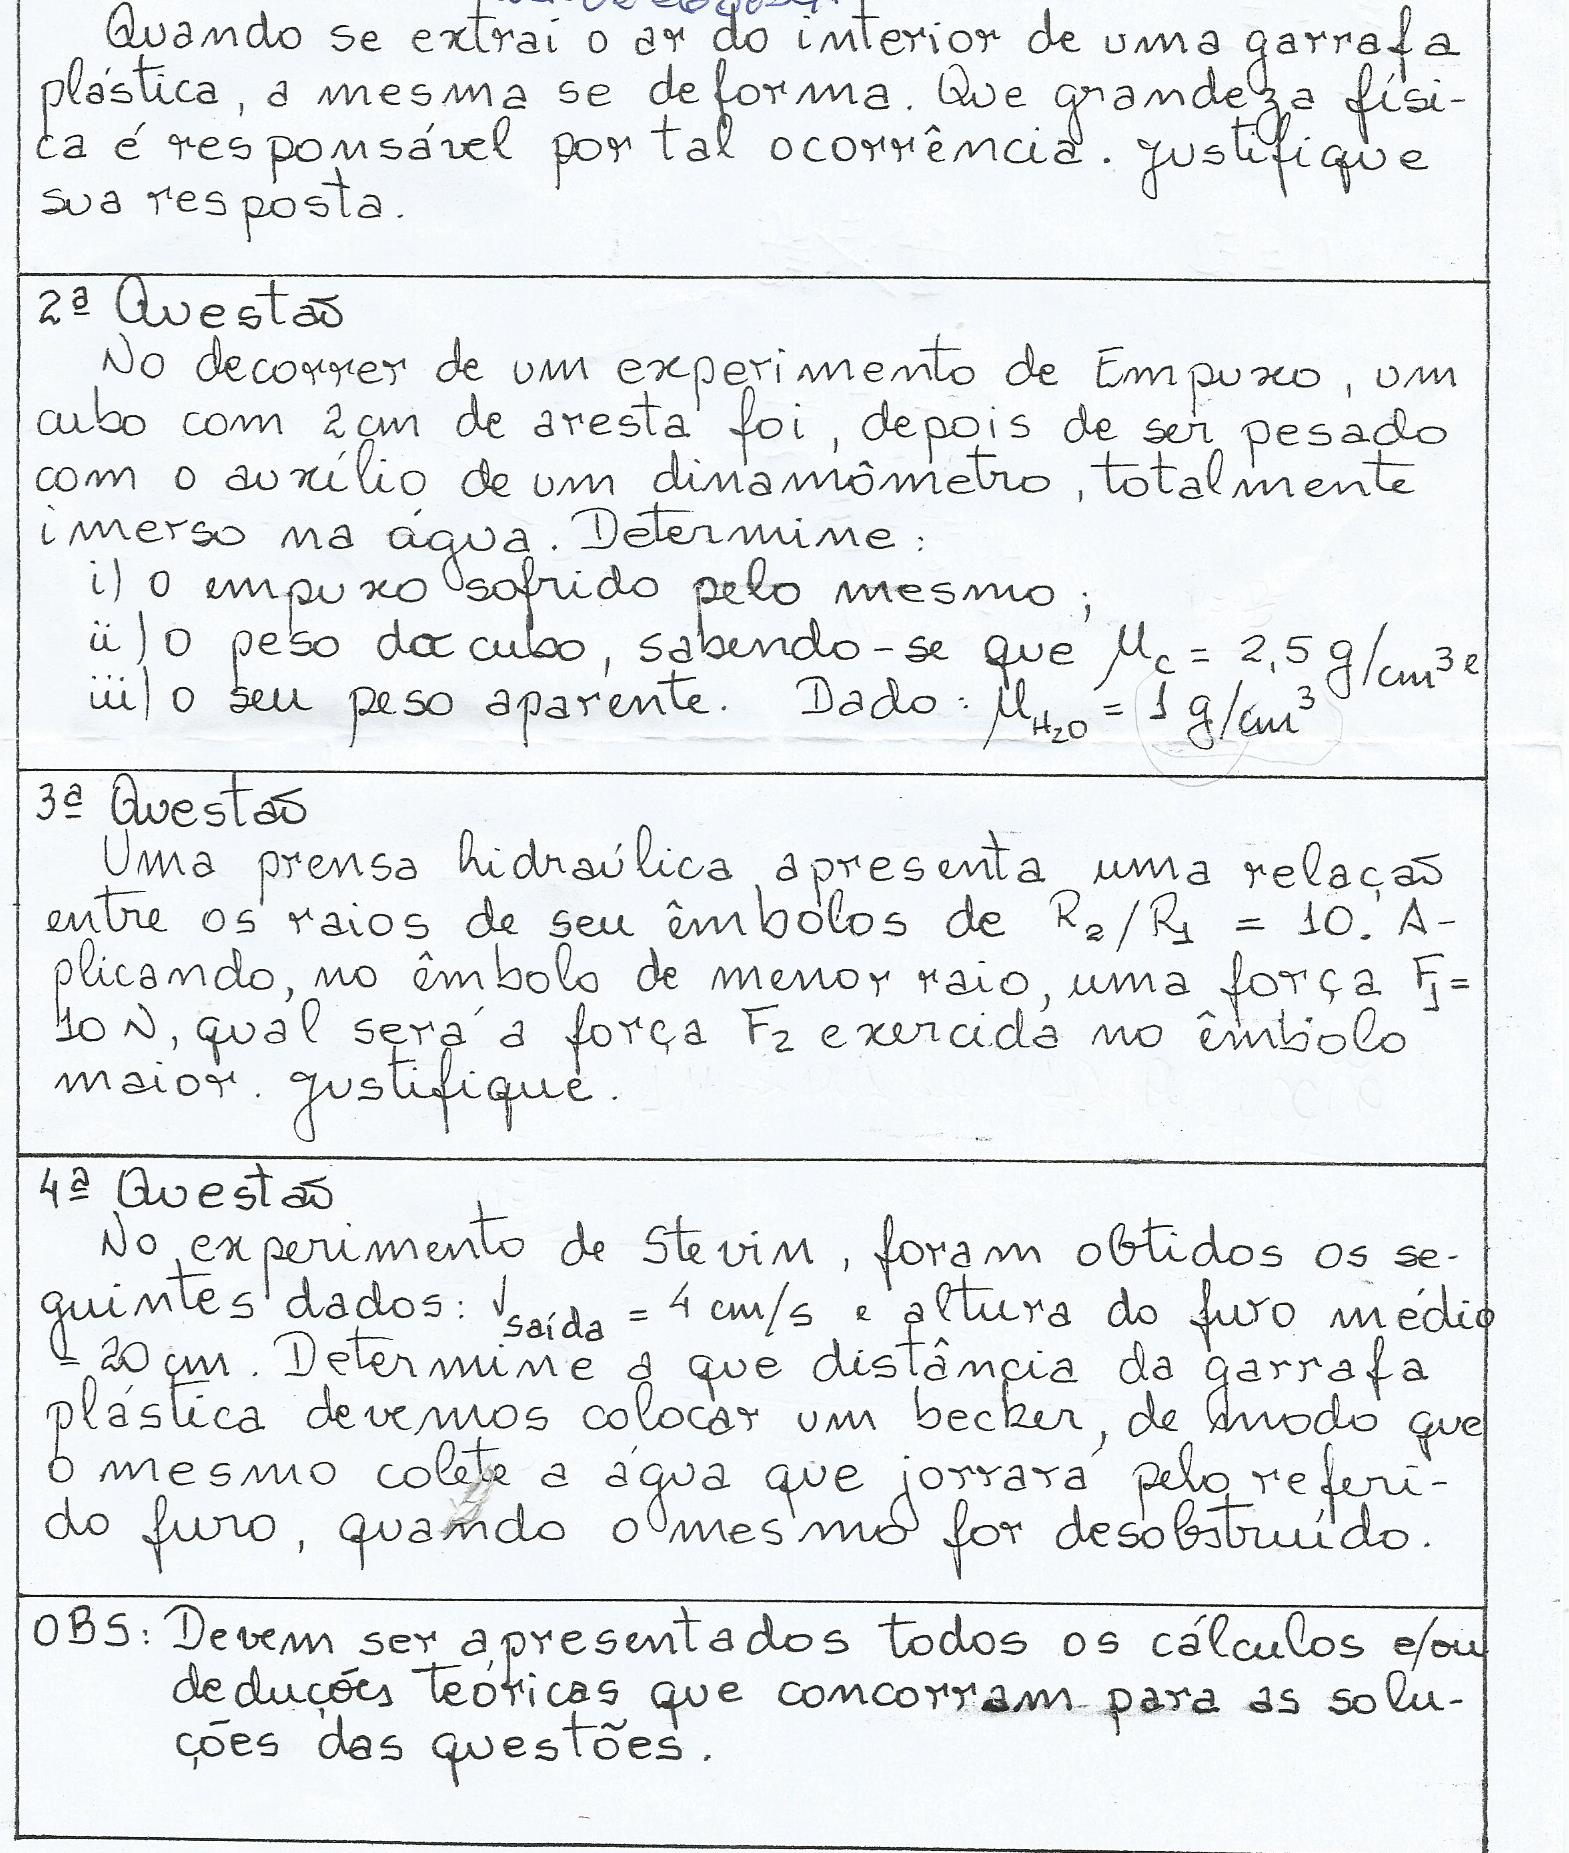 Quando se extrai o ar do interior de uma garrafa
plástica, a mesma se deforma. Que grandeza físi-
ca é responsável por tal ocorrência. Justifique
sua resposta.
2ª Questão
No decorrer de um experimento de Empuxo, um
cubo com 2 cm de aresta foi, depois de ser pesado
com o auxílio de um dinamômetro, totalmente
imerso na água. Determine:
i) o empuxo sofrido pelo mesmo;
ii) o peso do cubo, sabendo-se que μc = 2,5 g/cm³ e
iii) o seu peso aparente. Dado: μH₂O = 1 g/cm³
3ª Questão
Uma prensa hidraúlica apresenta uma relação
entre os raios de seu êmbolos de R₂/R₁ = 10. A-
plicando, no êmbolo de menor raio, uma força F₁=
10 N, qual será a força F₂ exercida no êmbolo
maior. Justifique.
4ª Questão
No experimento de Stevin, foram obtidos os se-
guintes dados: Vsaída = 4 cm/s e altura do furo médio
= 20 cm. Determine a que distância da garrafa
plástica devemos colocar um becker, de modo que
o mesmo colete a água que jorrará pelo referi-
do furo, quando o mesmo for desobstruído.
OBS: Devem ser apresentados todos os cálculos e/ou
deduções teóricas que concorram para as solu-
ções das questões.